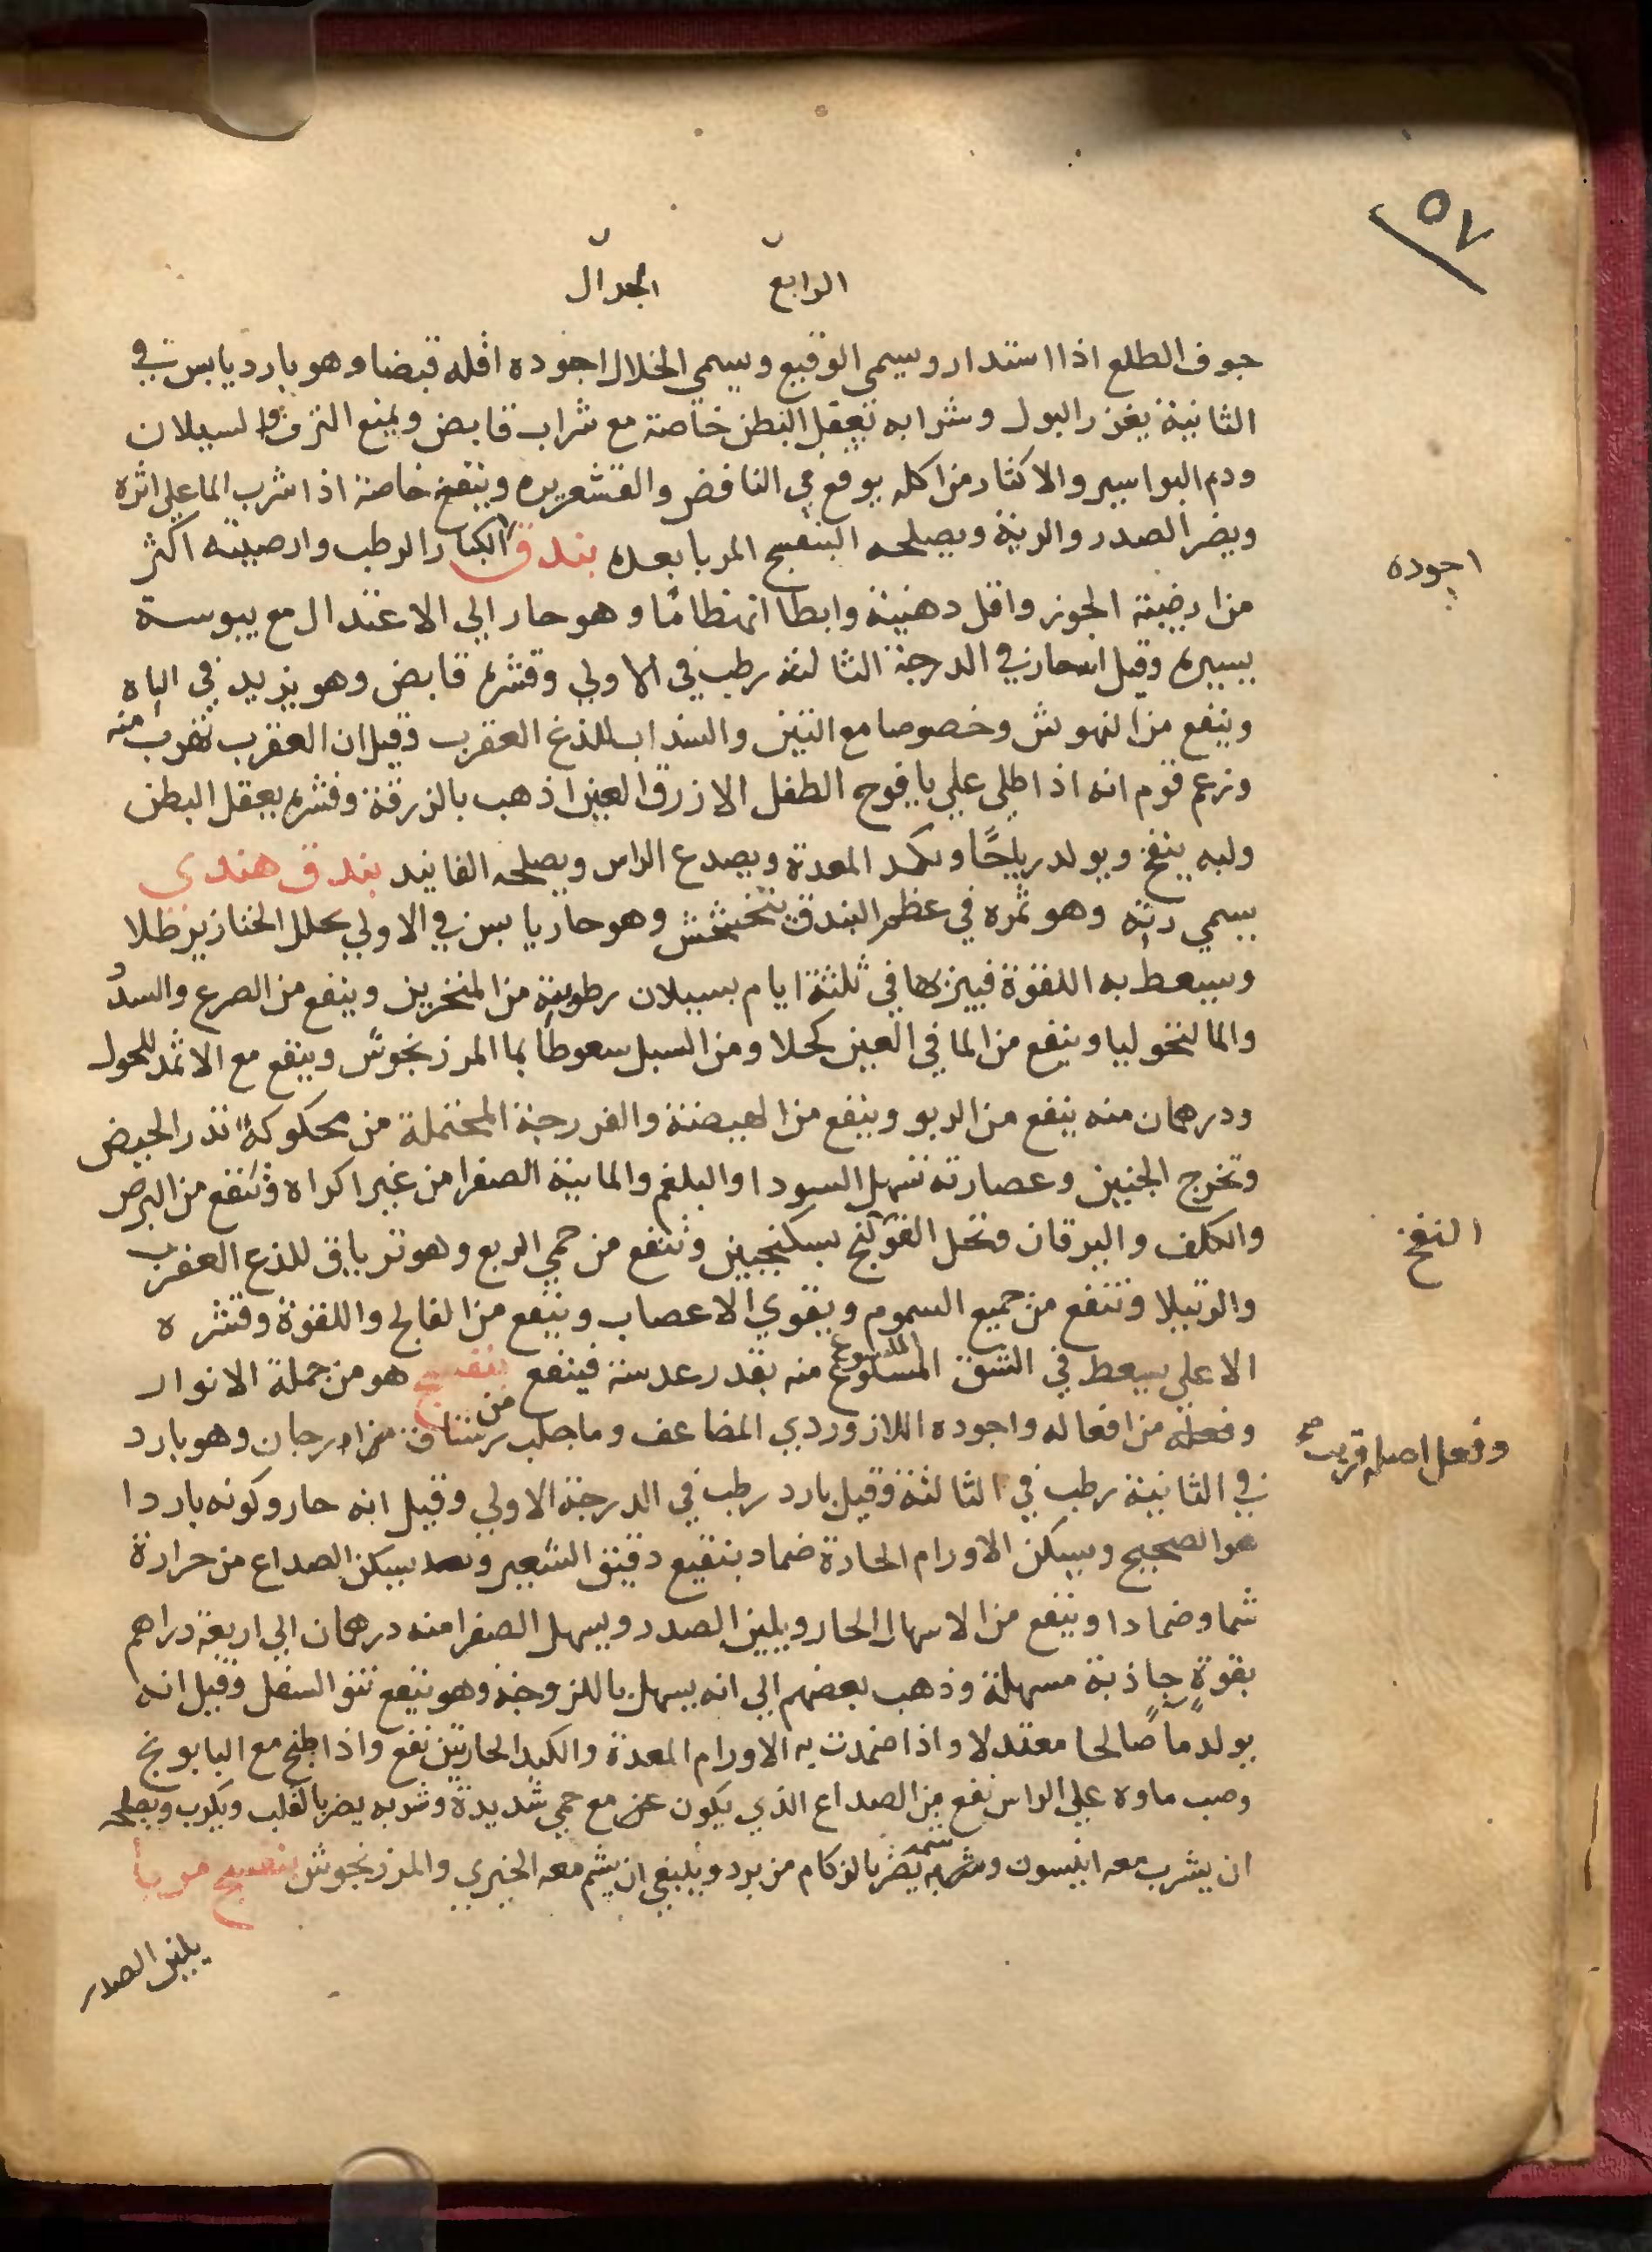 ٥٧
الرابع الجدال
جوف الطلع اذا استدار ويسمي الوقيع ويسمي الخلال اجوده اقله قبضا وهو بارد يابس في
الثانية يغزر البول وشرابه يعقل البطن خاصة مع شراب قابض ويمنع النزف والسيلان
ودم البواسير والاكثار من اكله يوقع في النافض والقشعريره وينفخ خاصة اذا شرب الما علي اثره
ويضر الصدر والرية ويصلحه البنفسج المربا بعده بندق الكبار الرطب وارضيته اكثر
اجوده
من ارضية الجوز واقل دهنية وابطا انهظاما وهو حار الي الاعتدال مع يبوسة
يسيره وقيل انه حار في الدرجة الثالثة رطب في الاولي وقشره قابض وهو يزيد في الباه
وينفع من النهوش وخصوصا مع التين والسنداب للذغ العقرب وقيل ان العقرب تهرب منه
وزعم قوم انه اذا طلي علي يافوح الطفل الازرق العين اذهب بالزرقة وقشره يعقل البطن
ولبه ينفخ ويولد رياحًا ويكمد المعدة ويصدع الراس ويصلحه الفانيد بندق هندي
يسمي رته وهو ثمره في عظم البندق يتخشخش وهو حار يابس في الاولي يحلل الخنازير طلا
ويسعط به اللقوة فيبريها في ثلثة ايام بسيلان رطوبة من المنخرين وينفع من الصرع والسدد
والمالنخوليا وينفع من الما في العين كحلا ومن السبل سعوطا بما المرزنجوش وينفع مع الاثمد للحول
ودرهمان منه ينفع من الربو وينفع من الهيضة والفررجة المحتملة من محكوكه تدر الحيض
وتخرج الجنين وعصارته تسهل السودا والبلغم والماينة الصفرا من غير اكراه وتنفع من البرص
والكلف واليرقان وتحل القولنج بسكنجبين وتنفع من حمي الربع وهو ترياق للذع العقرب
النفخ
والرتيلا وتنفع من جميع السموم ويقوي الاعصاب وينفع من الفالج واللقوة وقشره
الاعلي يسعط في الشق الملسوع منه بقدر عدسة فينفع بنفسج هو من جملة الانوار
وفعله من افعاله واجوده اللازوردي المضاعف وما جلب من رستاق ارجان وهو بارد
وفعل اصله قريب صح
في الثانية رطب في الثالثة وقيل بارد رطب في الدرجة الاولي وقيل انه حار وكونه باردا
هو الصحيح ويسكن الاورام الحادة ضماد بنقيع دقيق الشعير ويسكن الصداع من حرارة
شما وضمادا وينفع من الاسهال الحار ويلين الصدر ويسهل الصفرا منه درهمان الي اربعة دراهم
بقوةٍ جاذبة مسهلة وذهب بعضهم الي انه يسهل باللزوجة وهو ينفع نتو السفل وقيل انه
يولد مًا صالحا معتدلا واذا ضمدت به الاورام المعدة والكبد الحارتين نفع واذا طبخ مع البابونج
وصب ماوه علي الراس نفع من الصداع الذي يكون عن مع حمي شديدة وشربه يضر بالقلب ويكرب ويصلحه
ان يشرب معه انيسون وشمه يضر بالزكام من برد وينبغي ان يشم معه الخيري والمرزنجوش بنفسج مربا
يلين الصدر